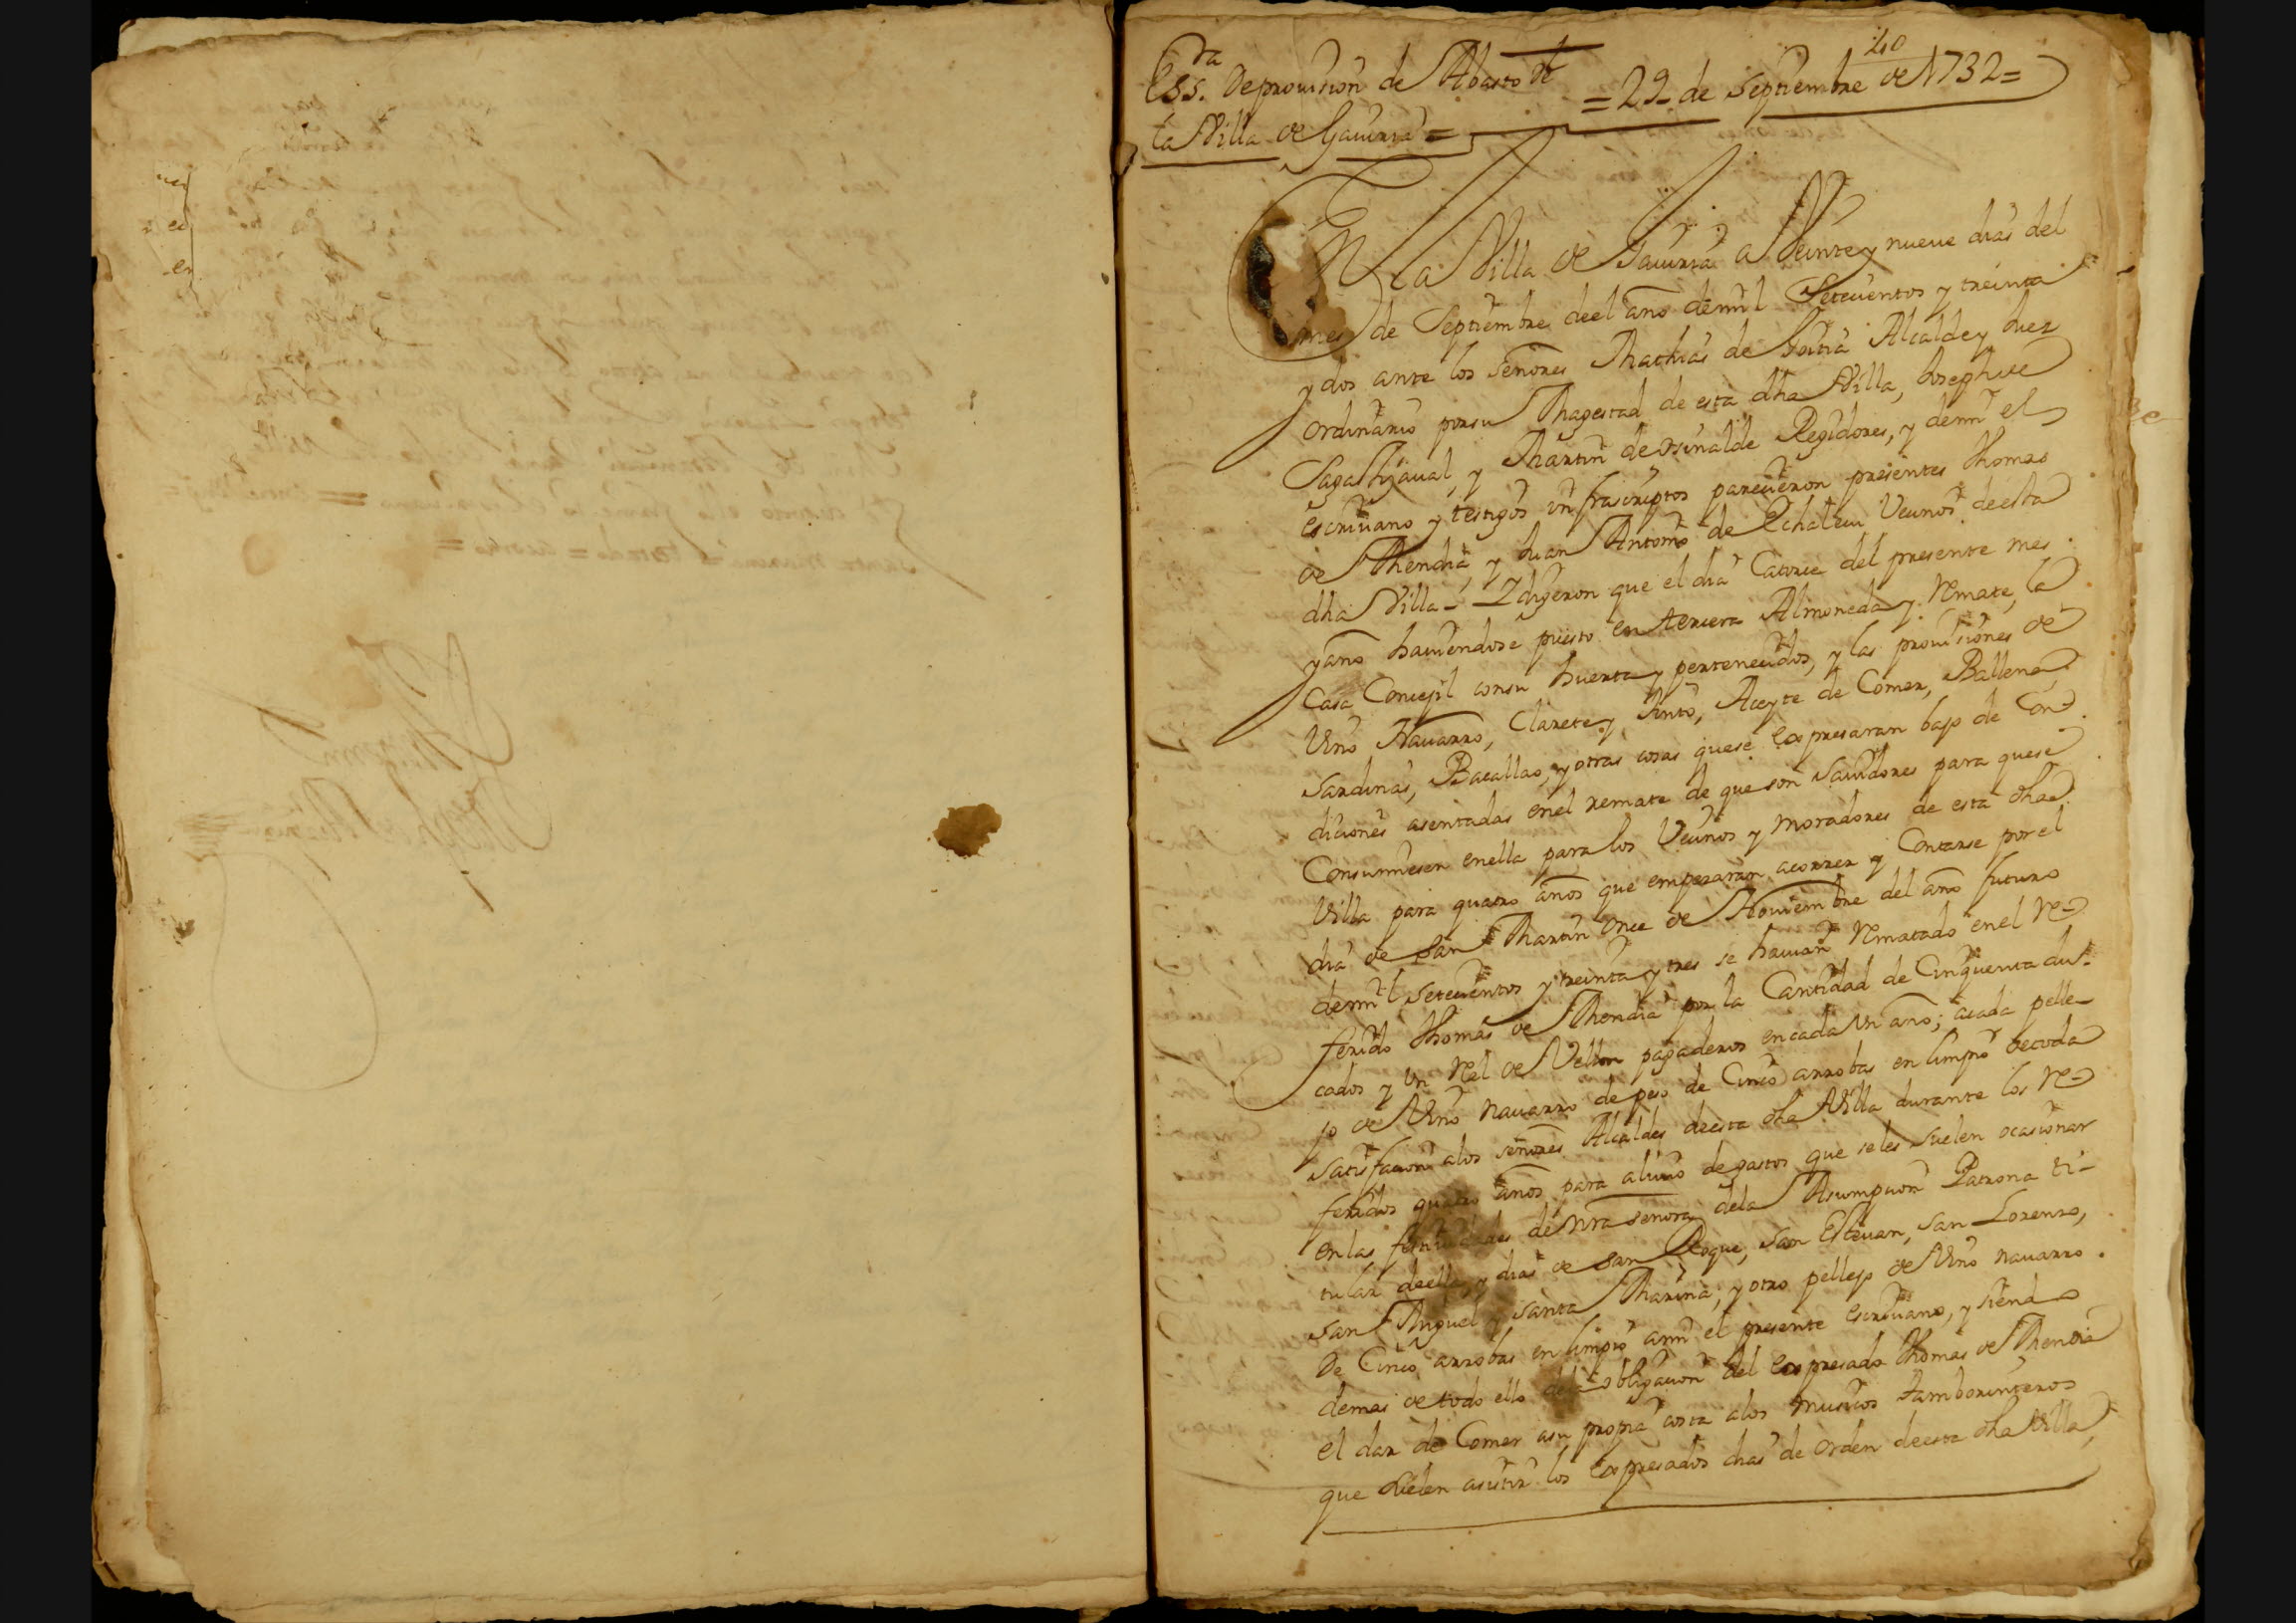 40
Ess.ra De prouision de Abasto de
la Villa de Gauiria =
= 29 de Septiembre de 1732 =
En la Villa de Gauiria a Veinte y nueue dias del
mes de Septiembre de el año de mil Setecientos y treinta
y dos ante los señores Mathias de Alcalde y Juez
ordinario por su Magestad de esta dha Villa, Joseph de
Sagastizaual, y Martin de Regidores, y de mi el
escriuano y testigos infrascriptos parecieron presentes Thomas
de Mendia, y Juan Antonio de Echalecu Vecinos de esta
dha Villa = Y digeron que el dia Catorce del presente mes
y año hauiendose puesto en tercera Almoneda y Remate, la
Casa Concejil con su huerta y pertenecidos, y las prouisiones de
Vino Nauarro, Clarete y tinto, Aceyte de Comer, Ballena,
Sardinas, Bacallao, y otras cosas que se expresaran bajo de Con-
diciones asentadas en el remate de que son sauidores para que se
Consumiesen en ella para los Vecinos y moradores de esta dha
Villa para quatro años que empezaran a correr y Contarse por el
dia de San Martin Once de Nouiembre del año futuro
de mil Setecientos y treinta y tres se hauian Rematado en el Re-
ferido Thomas de Mendia por la Cantidad de Cinquenta du-
cados y Un Rel de Vellon pagaderos en cada Un año; a cada pelle-
jo de Vino Nauarro de peso de Cinco arrobas en limpio de toda
satisfacion a los señores Alcaldes de esta dha Villa durante los Re-
feridos quatro años para aliuio de gastos que se les suelen ocasionar
en las festiuidades de nra señora de la Asumpcion Patrona ti-
tular de ella, y dias de San Roque, San Esteuan, San Lorenzo,
San Miguel y Santa Marina, y otro pellejo de Vino nauarro
De Cinco arrobas en limpio a mi el presente escriuano, y siendo
demas de todo ello de la obligacion del expresado Thomas de Mendia
el dar de Comer a su propia costa a los musicos tamborinteros
que suelen asistir los expresados dias de orden de esta dha Villa,